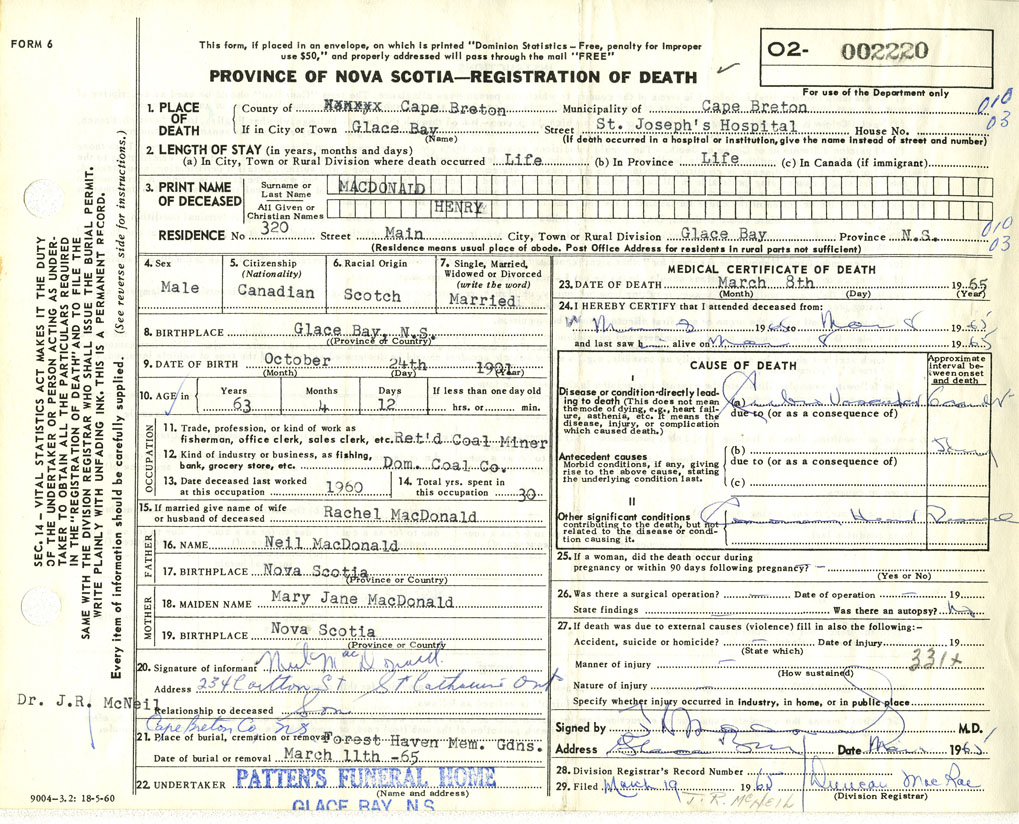 FORM 6
This form, if placed in an envelope, on which is printed "Dominion Statistics – Free, penalty for improper
use $50," and properly addressed will pass through the mail "FREE"
PROVINCE OF NOVA SCOTIA—REGISTRATION OF DEATH ✓
O2- 002220
For use of the Department only
1. PLACE OF DEATH
County of Cape Breton Municipality of Cape Breton 010
If in City or Town Glace Bay Street St. Joseph's Hospital House No. 03
(Name) (If death occurred in a hospital or institution, give the name instead of street and number)
2. LENGTH OF STAY (in years, months and days)
(a) In City, Town or Rural Division where death occurred Life (b) In Province Life (c) In Canada (if immigrant)
3. PRINT NAME OF DECEASED
Surname or Last Name MACDONALD
All Given or Christian Names HENRY
RESIDENCE No 320 Street Main City, Town or Rural Division Glace Bay Province N.S. 010 03
(Residence means usual place of abode. Post Office Address for residents in rural parts not sufficient)
4. Sex
Male
5. Citizenship (Nationality)
Canadian
6. Racial Origin
Scotch
7. Single, Married, Widowed or Divorced (write the word)
Married
8. BIRTHPLACE Glace Bay, N.S.
(Province or Country)
9. DATE OF BIRTH October 24th 1901
(Month) (Day) (Year)
10. AGE in Years Months Days If less than one day old
63 4 12 hrs. or min.
OCCUPATION
11. Trade, profession, or kind of work as
fisherman, office clerk, sales clerk, etc. Ret'd Coal Miner
12. Kind of industry or business, as fishing,
bank, grocery store, etc. Dom. Coal Co.
13. Date deceased last worked at this occupation 1960
14. Total yrs. spent in this occupation 30
15. If married give name of wife
or husband of deceased Rachel MacDonald
FATHER
16. NAME Neil MacDonald
17. BIRTHPLACE Nova Scotia
(Province or Country)
MOTHER
18. MAIDEN NAME Mary Jane MacDonald
19. BIRTHPLACE Nova Scotia
(Province or Country)
20. Signature of informant Neil MacDonald
Address 234 Carlton St St Catharines Ont
Relationship to deceased Son
Cape Breton Co NS
21. Place of burial, cremation or removal Forest Haven Mem. Gdns.
Date of burial or removal March 11th -65
22. UNDERTAKER PATTEN'S FUNERAL HOME
(Name and address)
GLACE BAY, N.S.
MEDICAL CERTIFICATE OF DEATH
23. DATE OF DEATH March 8th 1965
(Month) (Day) (Year)
24. I HEREBY CERTIFY that I attended deceased from:
1965 to Mar 8 1965
and last saw h alive on Mar 8 1965
CAUSE OF DEATH
Approximate interval between onset and death
I
Disease or condition directly leading to death (This does not mean the mode of dying, e.g., heart failure, asthenia, etc. It means the disease, injury, or complication which caused death.)
(a) Vascular
due to (or as a consequence of)
Antecedent causes
Morbid conditions, if any, giving rise to the above cause, stating the underlying condition last.
(b)
due to (or as a consequence of)
(c)
II
Other significant conditions
contributing to the death, but not related to the disease or condition causing it.
Heart
25. If a woman, did the death occur during
pregnancy or within 90 days following pregnancy? –
(Yes or No)
26. Was there a surgical operation? – Date of operation – 19
State findings Was there an autopsy? No
27. If death was due to external causes (violence) fill in also the following:–
Accident, suicide or homicide? – Date of injury 19
(State which)
331x
Manner of injury –
(How sustained)
Nature of injury –
Specify whether injury occurred in industry, in home, or in public place
Signed by M.D.
Address Glace Bay Date Mar 1965
28. Division Registrar's Record Number
29. Filed March 19 1965 Duncan MacRae
J. R. McNEIL (Division Registrar)
SEC. 14 – VITAL STATISTICS ACT MAKES IT THE DUTY
OF THE UNDERTAKER OR PERSON ACTING AS UNDER-
TAKER TO OBTAIN ALL THE PARTICULARS REQUIRED
IN THE "REGISTRATION OF DEATH" AND TO FILE THE
SAME WITH THE DIVISION REGISTRAR WHO SHALL ISSUE THE BURIAL PERMIT.
WRITE PLAINLY WITH UNFADING INK. THIS IS A PERMANENT RECORD.
Every item of information should be carefully supplied. (See reverse side for instructions.)
Dr. J.R. McNeil
9004–3.2: 18-5-60